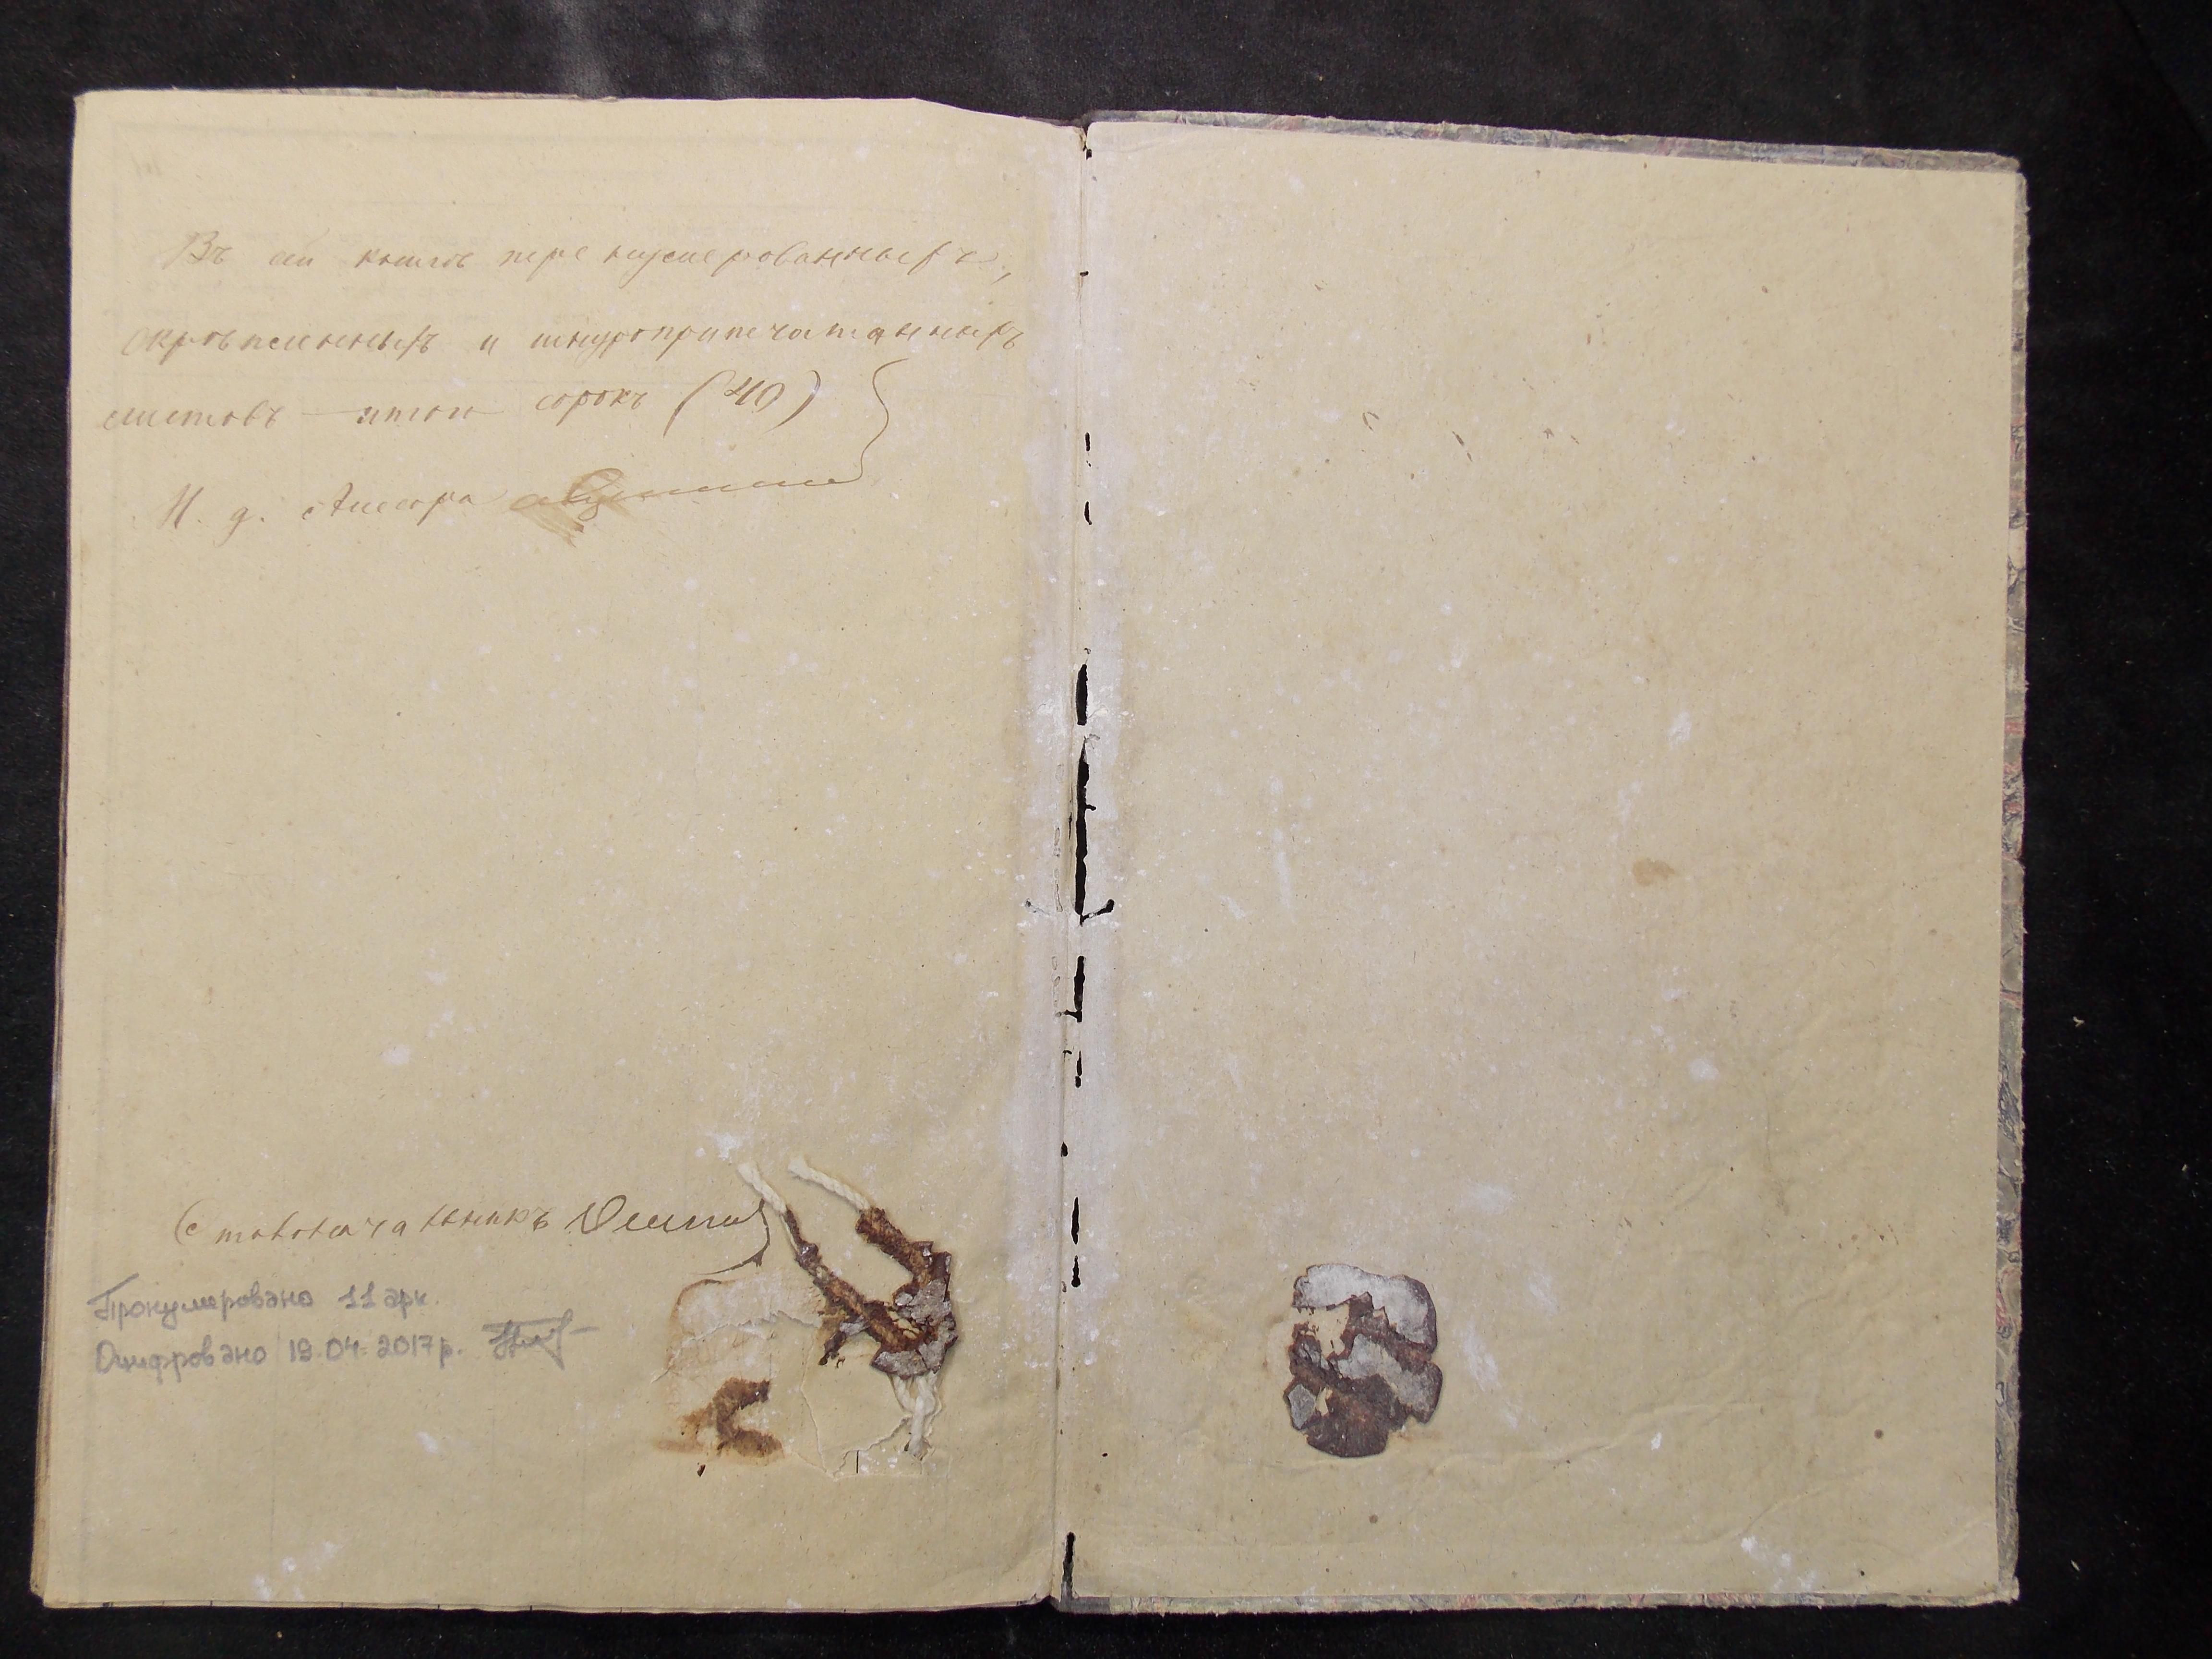 Въ сей книгѣ перенумерованныхъ,
скрѣпленныхъ и шнуроприпечатанныхъ
листовъ — итого сорокъ (40)
И. д. Асессора
Столоначальникъ
Пронумеровано 11 арк.
Оцифровано 19.04.2017 р.